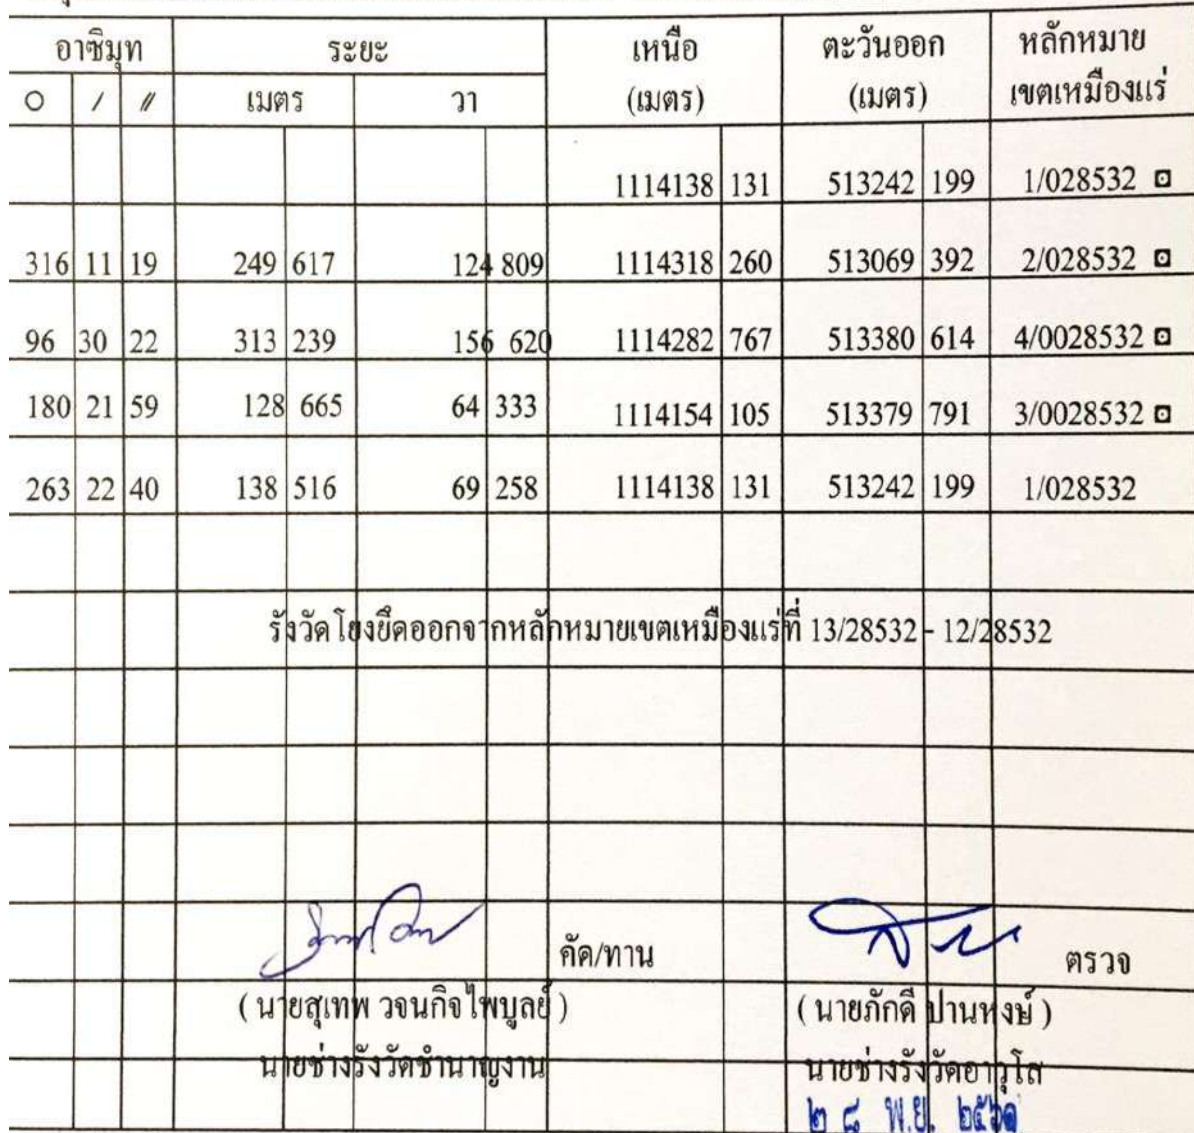 อาซิมุท ระยะ เหนือ ตะวันออก หลักหมาย
○ / // เมตร วา (เมตร) (เมตร) เขตเหมืองแร่
1114138 131 513242 199 1/028532
316 11 19 249 617 124 809 1114318 260 513069 392 2/028532
96 30 22 313 239 156 620 1114282 767 513380 614 4/0028532
180 21 59 128 665 64 333 1114154 105 513379 791 3/0028532
263 22 40 138 516 69 258 1114138 131 513242 199 1/028532
รังวัดโยงยึดออกจากหลักหมายเขตเหมืองแร่ที่ 13/28532 - 12/28532
คัด/ทาน ตรวจ
( นายสุเทพ วจนกิจไพบูลย์ ) ( นายภักดี ปานหงษ์ )
นายช่างรังวัดชำนาญงาน นายช่างรังวัดอาวุโส
๒ ๘ พ.ย. ๒๕๖๑